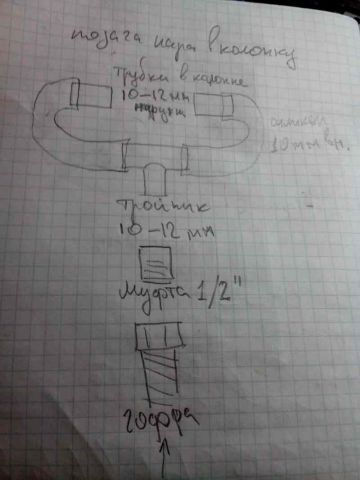 подача пара в колонку
трубки в колонне
10-12 мм
наружн
силикон
10 мм вн.
тройник
10-12 мм
муфта 1/2"
гофра